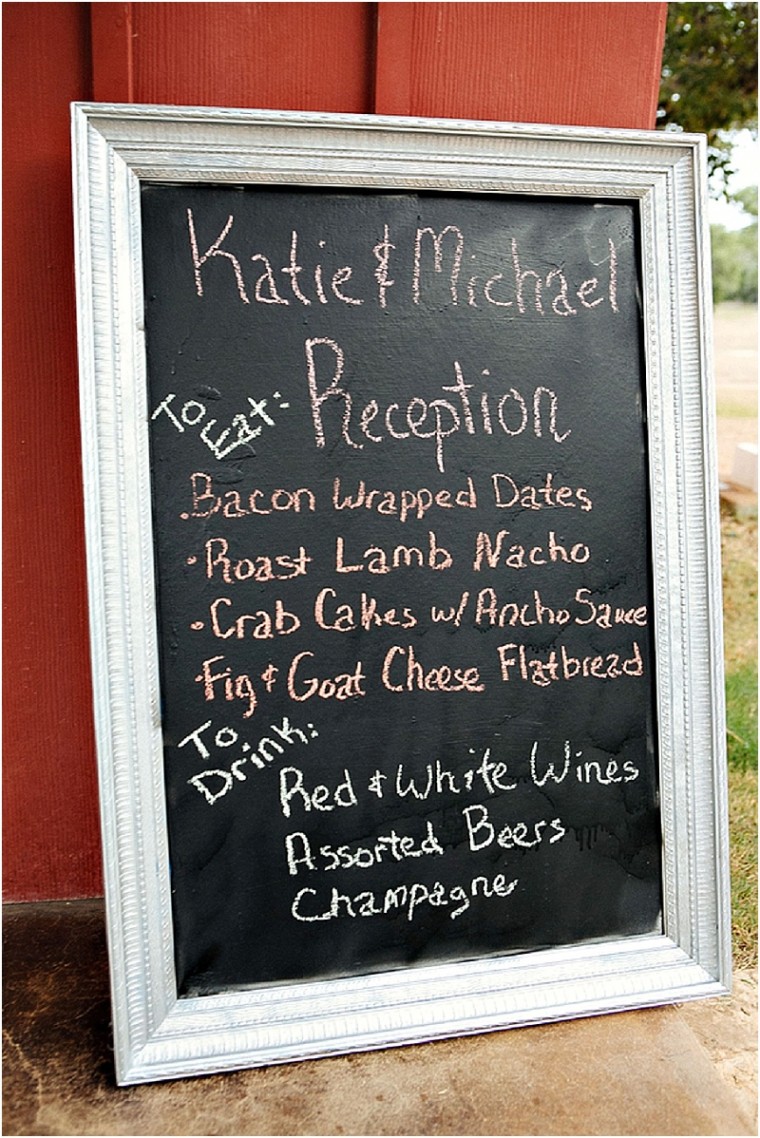 Katie & Michael
Reception
To
Eat:
• Bacon Wrapped Dates
• Roast Lamb Nacho
• Crab Cakes w/ Ancho Sauce
• Fig & Goat Cheese Flatbread
To
Drink:
Red & White Wines
Assorted Beers
Champagne